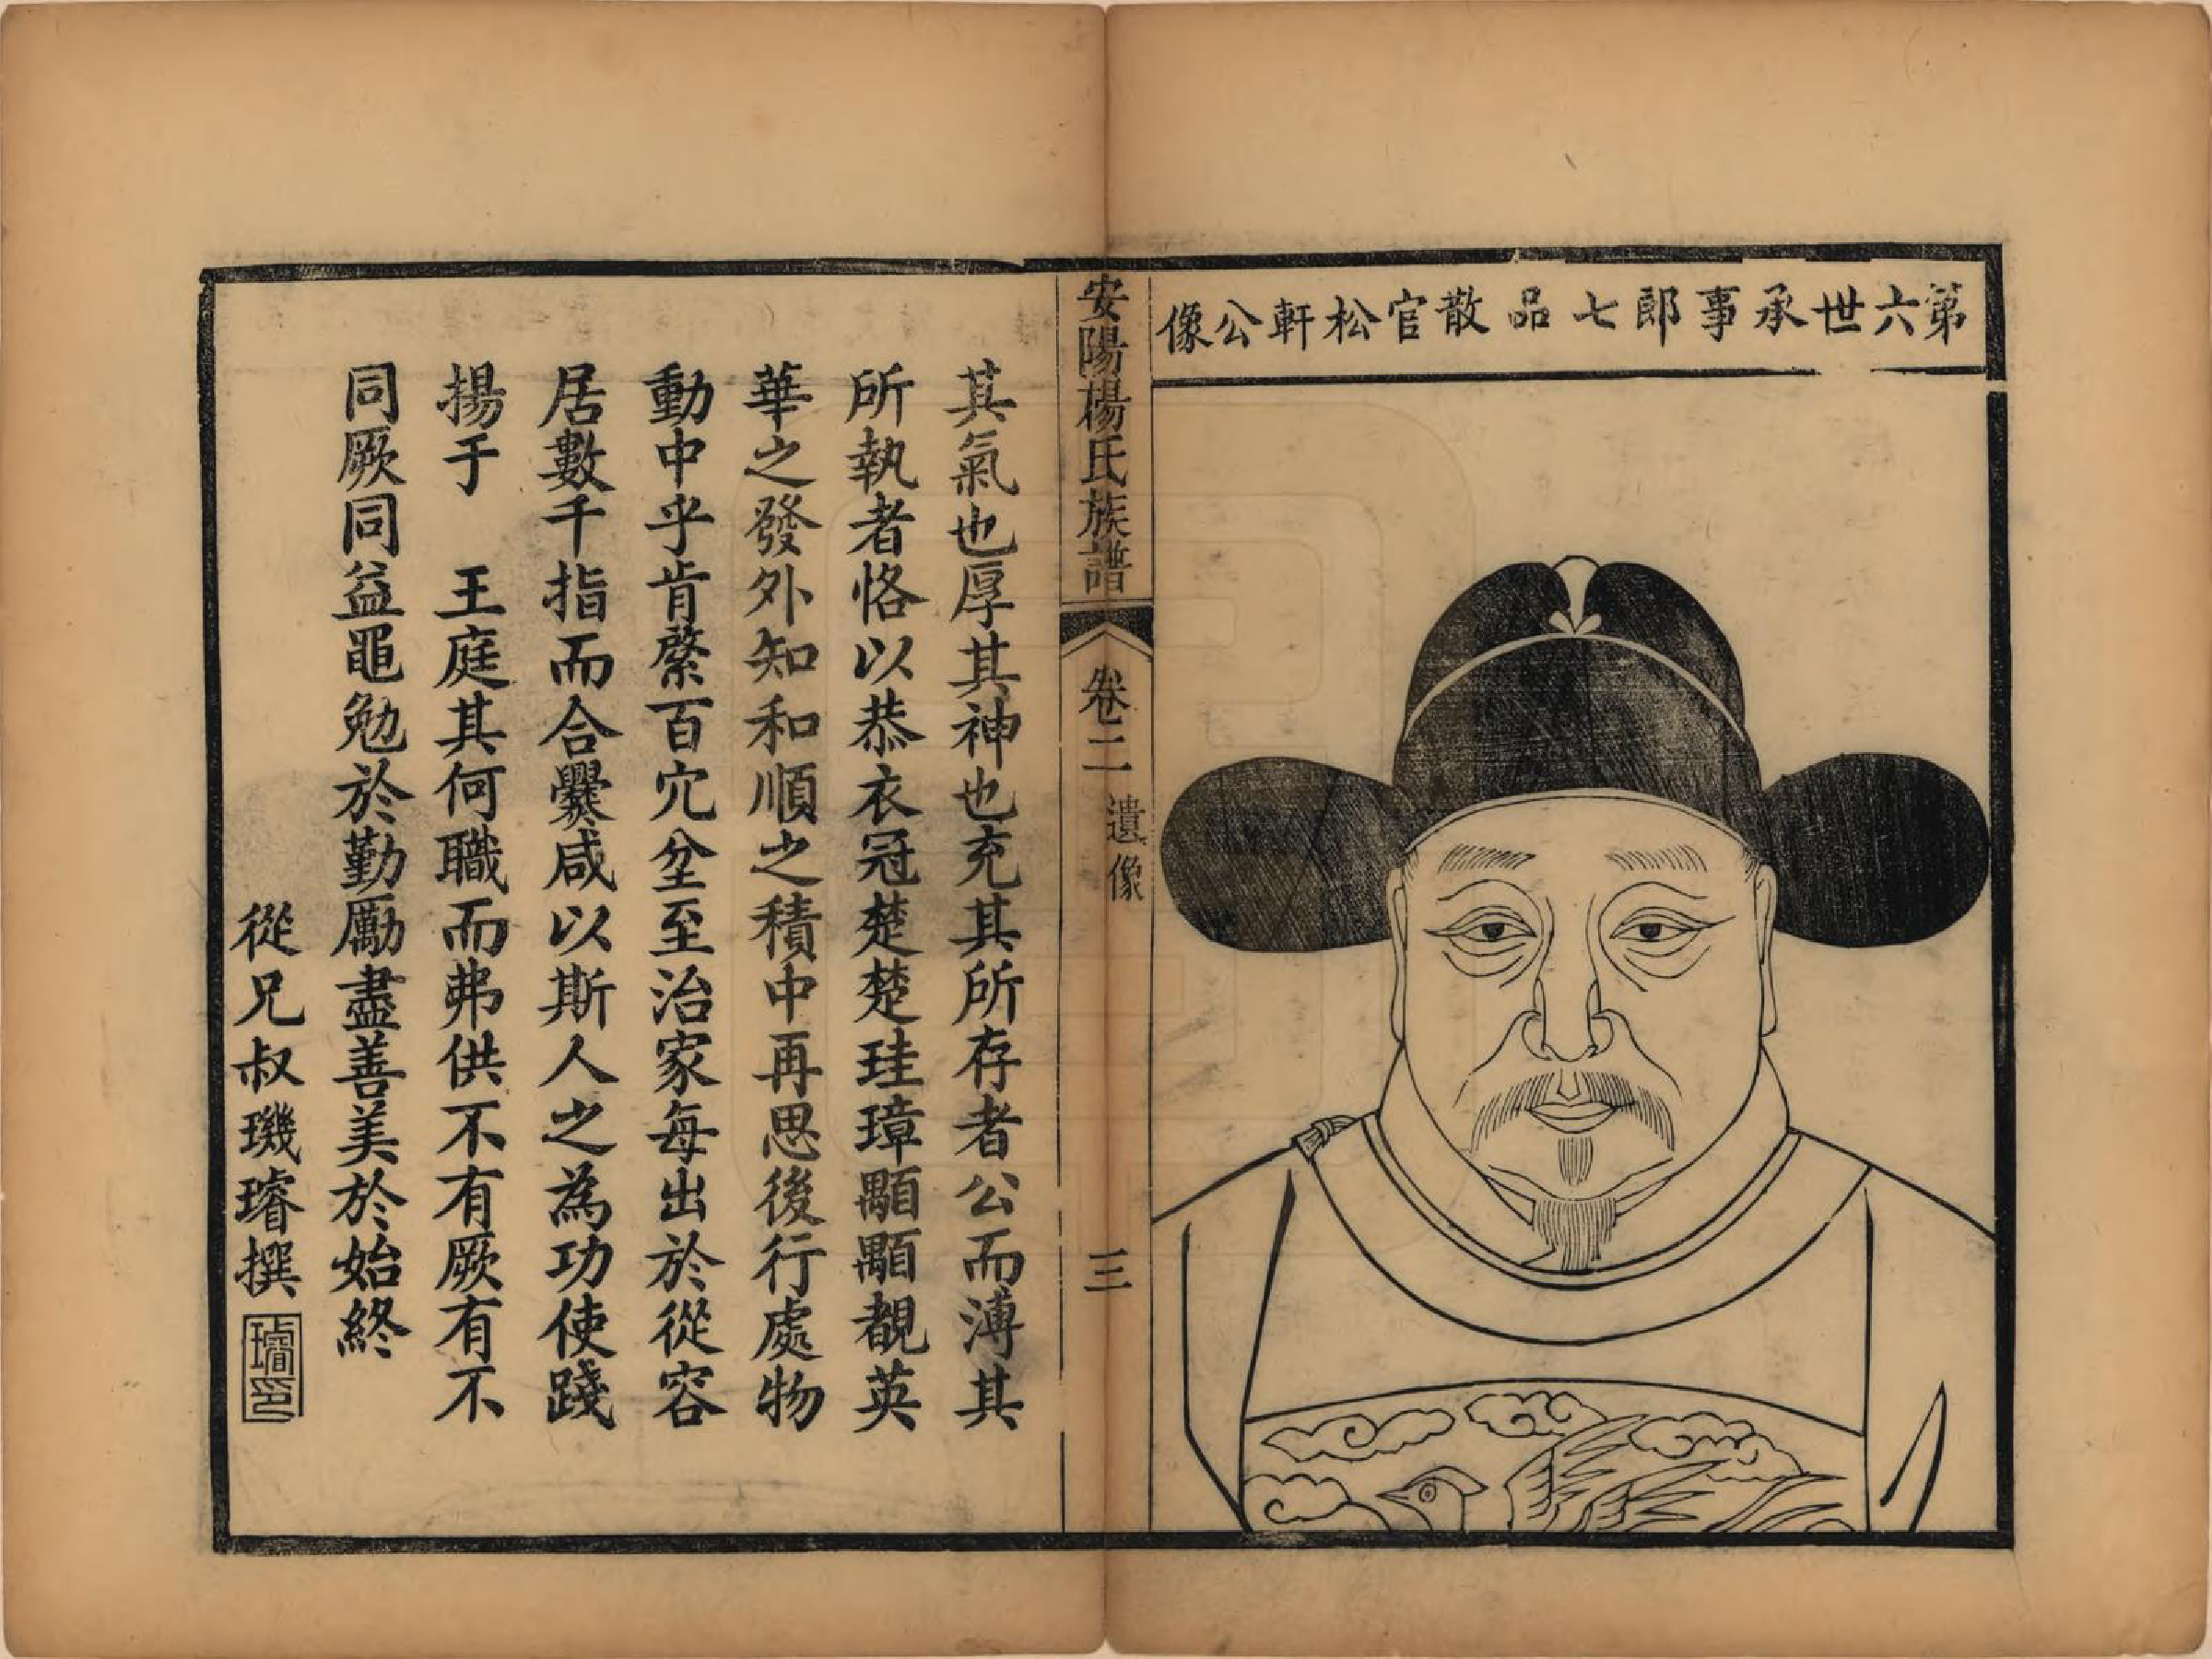 第六世承事郎七品散官松軒公像
安陽楊氏族譜
卷二
遺像
三
其氣也厚其神也充其所存者公而溥其
所執者恪以恭衣冠楚楚珪璋顒顒覩英
華之發外知和順之積中再思後行處物
動中乎肯綮百穴坌至治家每出於從容
居數千指而合爨咸以斯人之為功使踐
揚于　王庭其何職而弗供不有厥有不
同厥同益黽勉於勤勵盡善美於始終
從兄叔璣璿撰